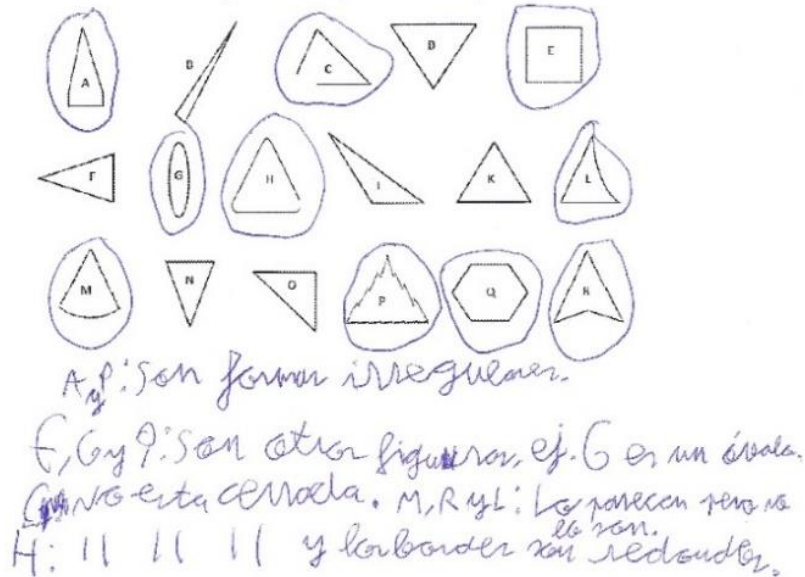 A B C D E
F G H I K L
M N O P Q R
A y P: Son formas irregulares.
E, G y Q: Son otras figuras, ej. G es un óvalo.
C: No esta cerrada. M, R y L: Lo parecen pero no
lo son.
H: 11 11 11 y los bordes son redondos.